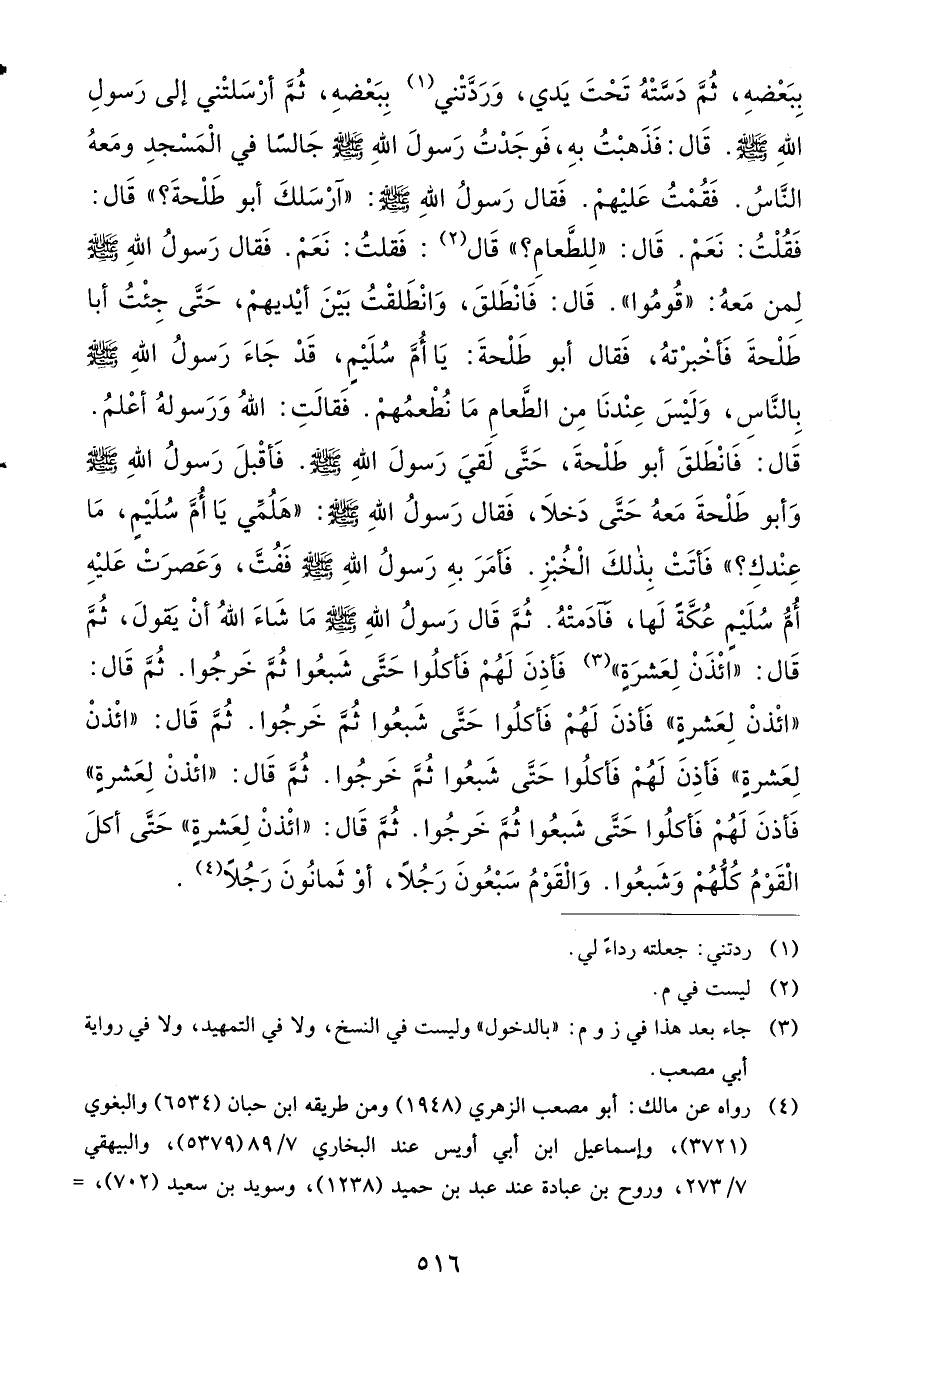 بِبَعْضهِ، ثُمَّ دَسَّتْهُ تَحْتَ يَدي، وَرَدَّتْني(١) بِبَعْضهِ، ثُمَّ أرْسَلتْني إلى رَسولِ
اللهِ ﷺ. قَال: فَذَهبْتُ بهِ، فَوجَدْتُ رَسولَ اللهِ ﷺ جَالسًا في الْمَسْجدِ ومَعهُ
النَّاسُ. فَقُمْتُ عَليْهمْ. فَقال رَسولُ اللهِ ﷺ: «آرْسَلكَ أبو طَلْحةَ؟» قَال:
فَقُلْتُ: نَعَمْ. قَال: «لِلطَّعامِ؟» قَال(٢): فَقلتُ: نَعَمْ. فَقال رَسولُ اللهِ ﷺ
لِمن مَعهُ: «قُومُوا». قَال: فَانْطلقَ، وَانْطلقْتُ بَيْنَ أيْديهمْ، حَتَّى جِئْتُ أبا
طَلْحةَ فَأخْبرْتهُ، فَقال أبو طَلْحةَ: يَا أُمَّ سُلَيْمٍ، قَدْ جَاءَ رَسولُ اللهِ ﷺ
بِالنَّاسِ، وَلَيْسَ عِنْدنَا مِن الطَّعامِ مَا نُطْعمُهمْ. فَقالَتِ: اللهُ وَرَسولهُ أعْلمُ.
قَال: فَانْطلقَ أبو طَلْحةَ، حَتَّى لَقيَ رَسولَ اللهِ ﷺ. فَأقْبلَ رَسولُ اللهِ ﷺ
وَأبو طَلْحةَ مَعهُ حَتَّى دَخلَا، فَقال رَسولُ اللهِ ﷺ: «هَلُمِّي يَا أُمَّ سُلَيْمٍ، مَا
عِنْدكِ؟» فَأتَتْ بِذٰلكَ الْخُبْزِ. فَأمَرَ بهِ رَسولُ اللهِ ﷺ فَفُتَّ، وَعَصرَتْ عَليْهِ
أُمُّ سُلَيْمٍ عُكَّةً لَها، فَآدَمتْهُ. ثُمَّ قَال رَسولُ اللهِ ﷺ مَا شَاءَ اللهُ أنْ يَقولَ، ثُمَّ
قَال: «ائْذَنْ لِعَشرَةٍ»(٣) فَأذِنَ لَهُمْ فَأكلُوا حَتَّى شَبعُوا ثُمَّ خَرجُوا. ثُمَّ قَال:
«ائْذنْ لِعَشرةٍ» فَأذنَ لَهُمْ فَأكلُوا حَتَّى شَبعُوا ثُمَّ خَرجُوا. ثُمَّ قَال: «ائْذنْ
لِعَشرةٍ» فَأذِنَ لَهُمْ فَأكلُوا حَتَّى شَبعُوا ثُمَّ خَرجُوا. ثُمَّ قَال: «ائْذنْ لِعَشرةٍ»
فَأذنَ لَهُمْ فَأكلُوا حَتَّى شَبعُوا ثُمَّ خَرجُوا. ثُمَّ قَال: «ائْذنْ لِعَشرةٍ» حَتَّى أكلَ
الْقَوْمُ كُلُّهُمْ وَشَبعُوا. وَالْقَوْمُ سَبْعُونَ رَجُلاً، أوْ ثَمانُونَ رَجُلاً(٤).
(١) ردتني: جعلته رداءً لي.
(٢) ليست في م.
(٣) جاء بعد هذا في ز و م: «بالدخول» وليست في النسخ، ولا في التمهيد، ولا في رواية
أبي مصعب.
(٤) رواه عن مالك: أبو مصعب الزهري (١٩٤٨) ومن طريقه ابن حبان (٦٥٣٤) والبغوي
(٣٧٢١)، وإسماعيل ابن أبي أويس عند البخاري ٨٩/٧ (٥٣٧٩)، والبيهقي
٢٧٣/٧، وروح بن عبادة عند عبد بن حميد (١٢٣٨)، وسويد بن سعيد (٧٠٢)، =
٥١٦